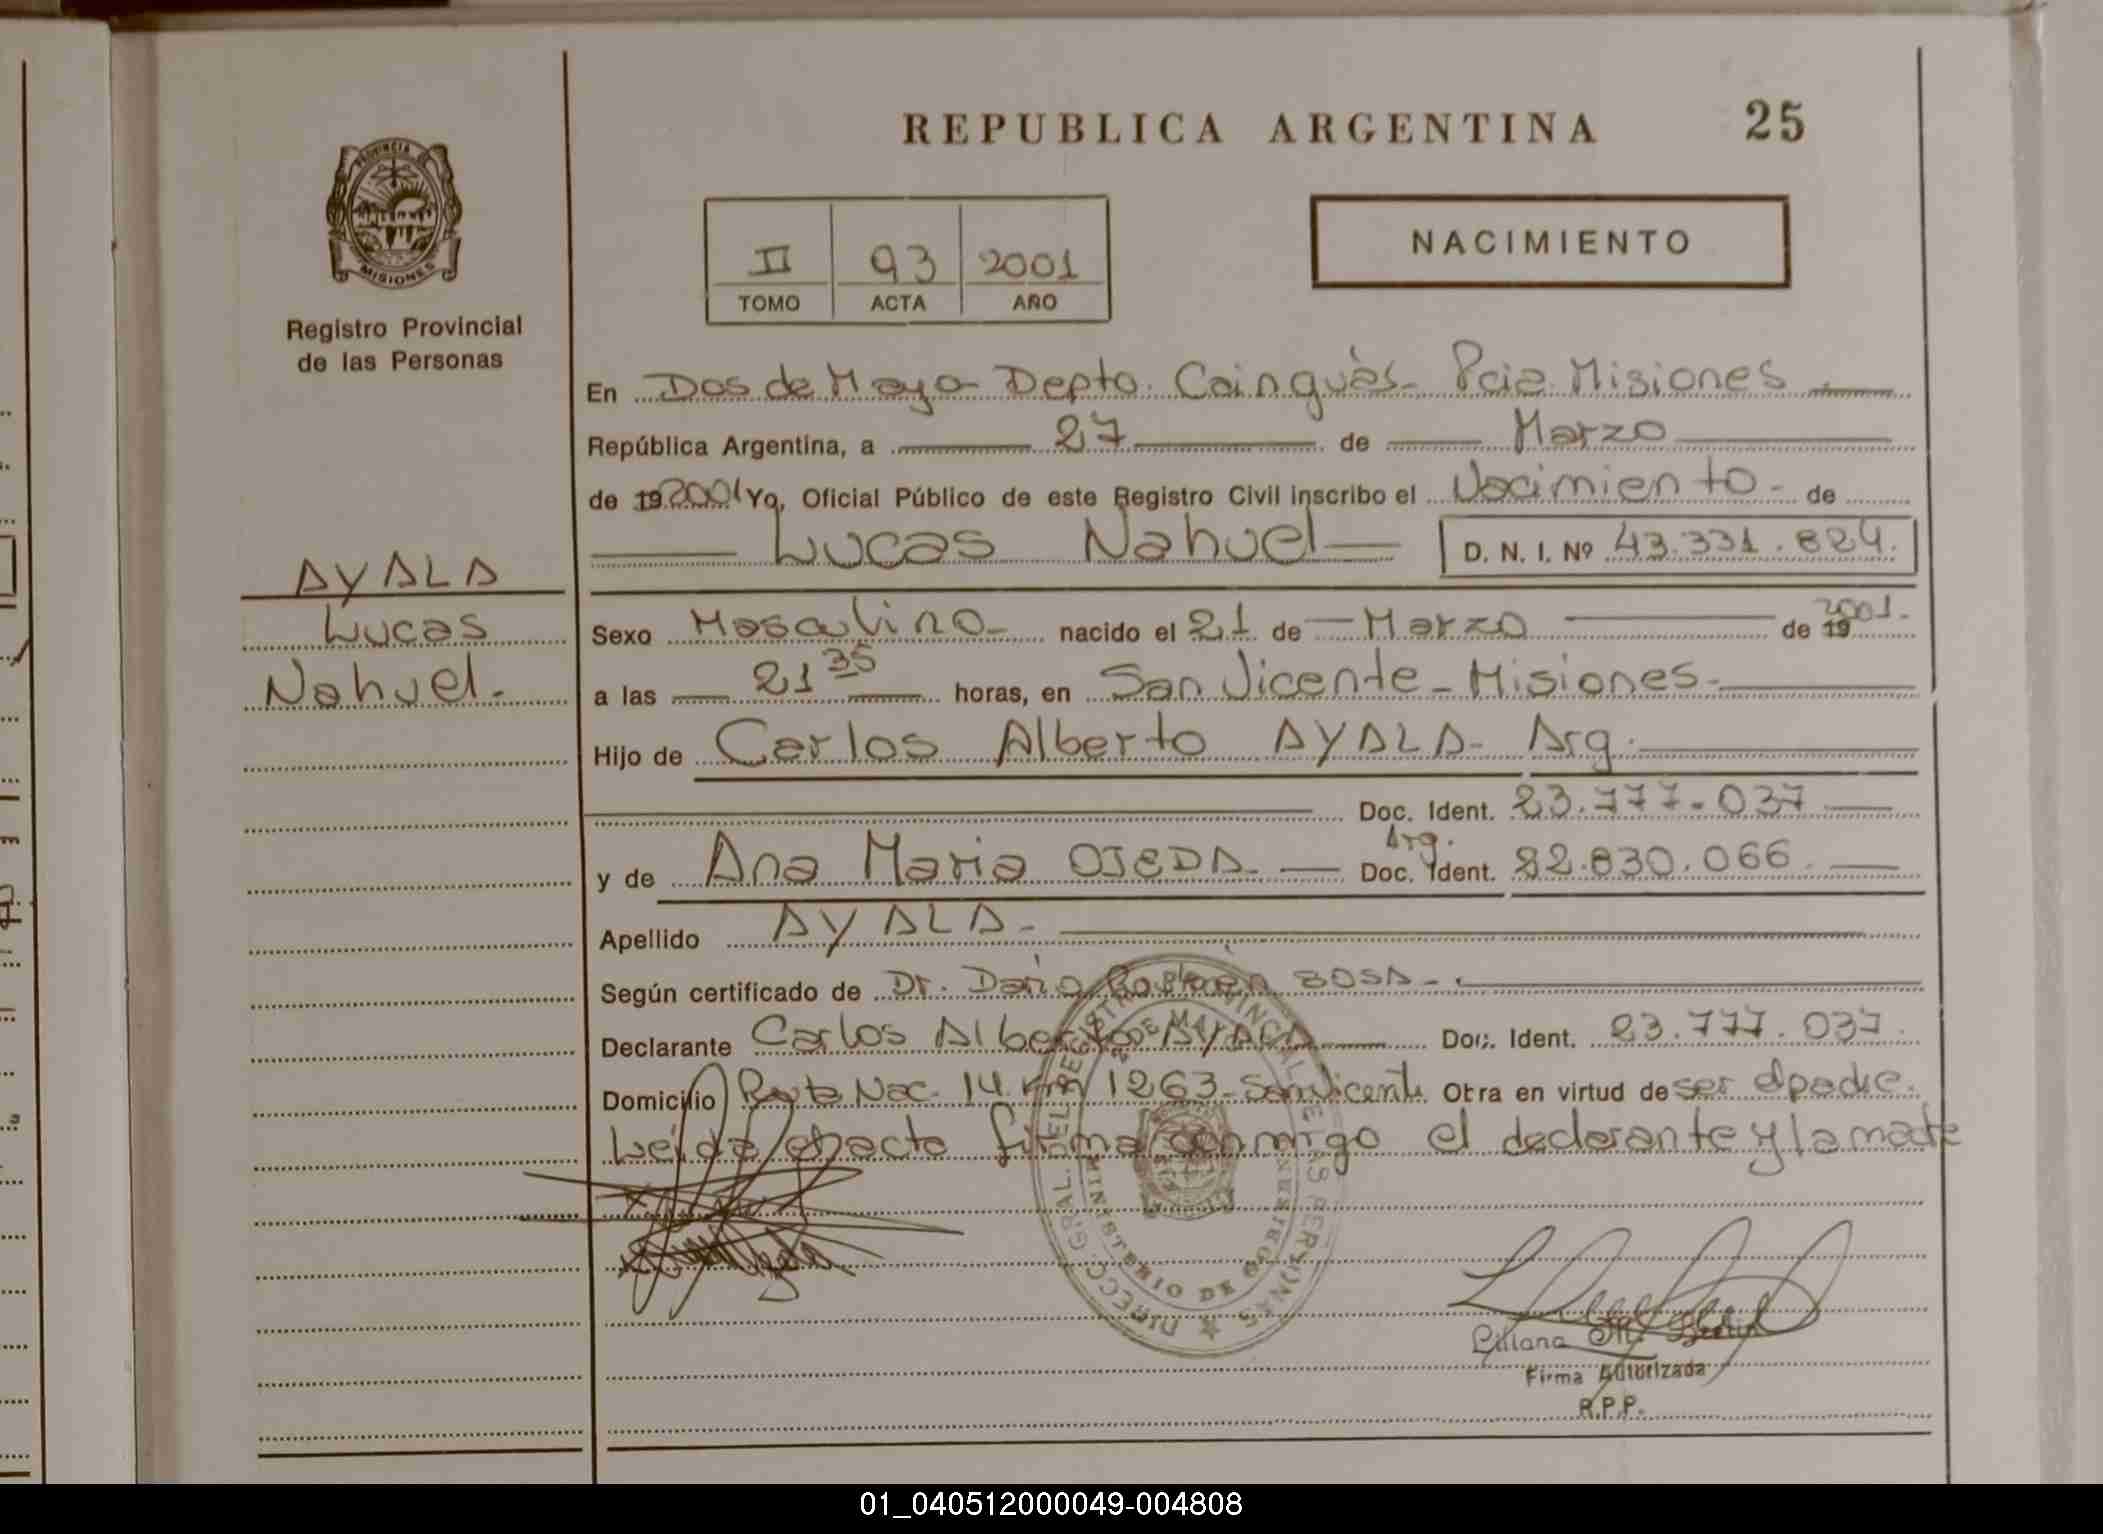 REPUBLICA ARGENTINA 25
PROVINCIA DE MISIONES
Registro Provincial
de las Personas
II 93 2001
TOMO ACTA AÑO
NACIMIENTO
En Dos de Mayo Depto. Cainguàs - Pcia. Misiones
República Argentina, a 27 de Marzo
de 19 2001 Yo, Oficial Público de este Registro Civil inscribo el Nacimiento - de
Lucas Nahuel D. N. I. Nº 43.331.824.
AYALA
Lucas
Nahuel.
Sexo Masculino - nacido el 21 de Marzo de 19 2001.
a las 21 35 horas, en San Vicente - Misiones -
Hijo de Carlos Alberto AYALA - Arg.
Doc. Ident. 23.777.037
Arg.
y de Ana Maria OJEDA - Doc. Ident. 22.830.066.
Apellido AYALA -
Según certificado de Dr. Dario SOSA -
Declarante Carlos Alberto AYALA Doc. Ident. 23.777.037.
Domicilio Ruta Nac. 14 Km 1263 - San Vicente Obra en virtud de ser el padre.
Leída el acta firma conmigo el declarante y la madre
DIRECC. GRAL. DEL REGISTRO PROVINCIAL DE LAS PERSONAS
MINISTERIO DE GOBIERNO
2 DE MAYO
Liliana M.
Firma Autorizada
R.P.P.
01_040512000049-004808